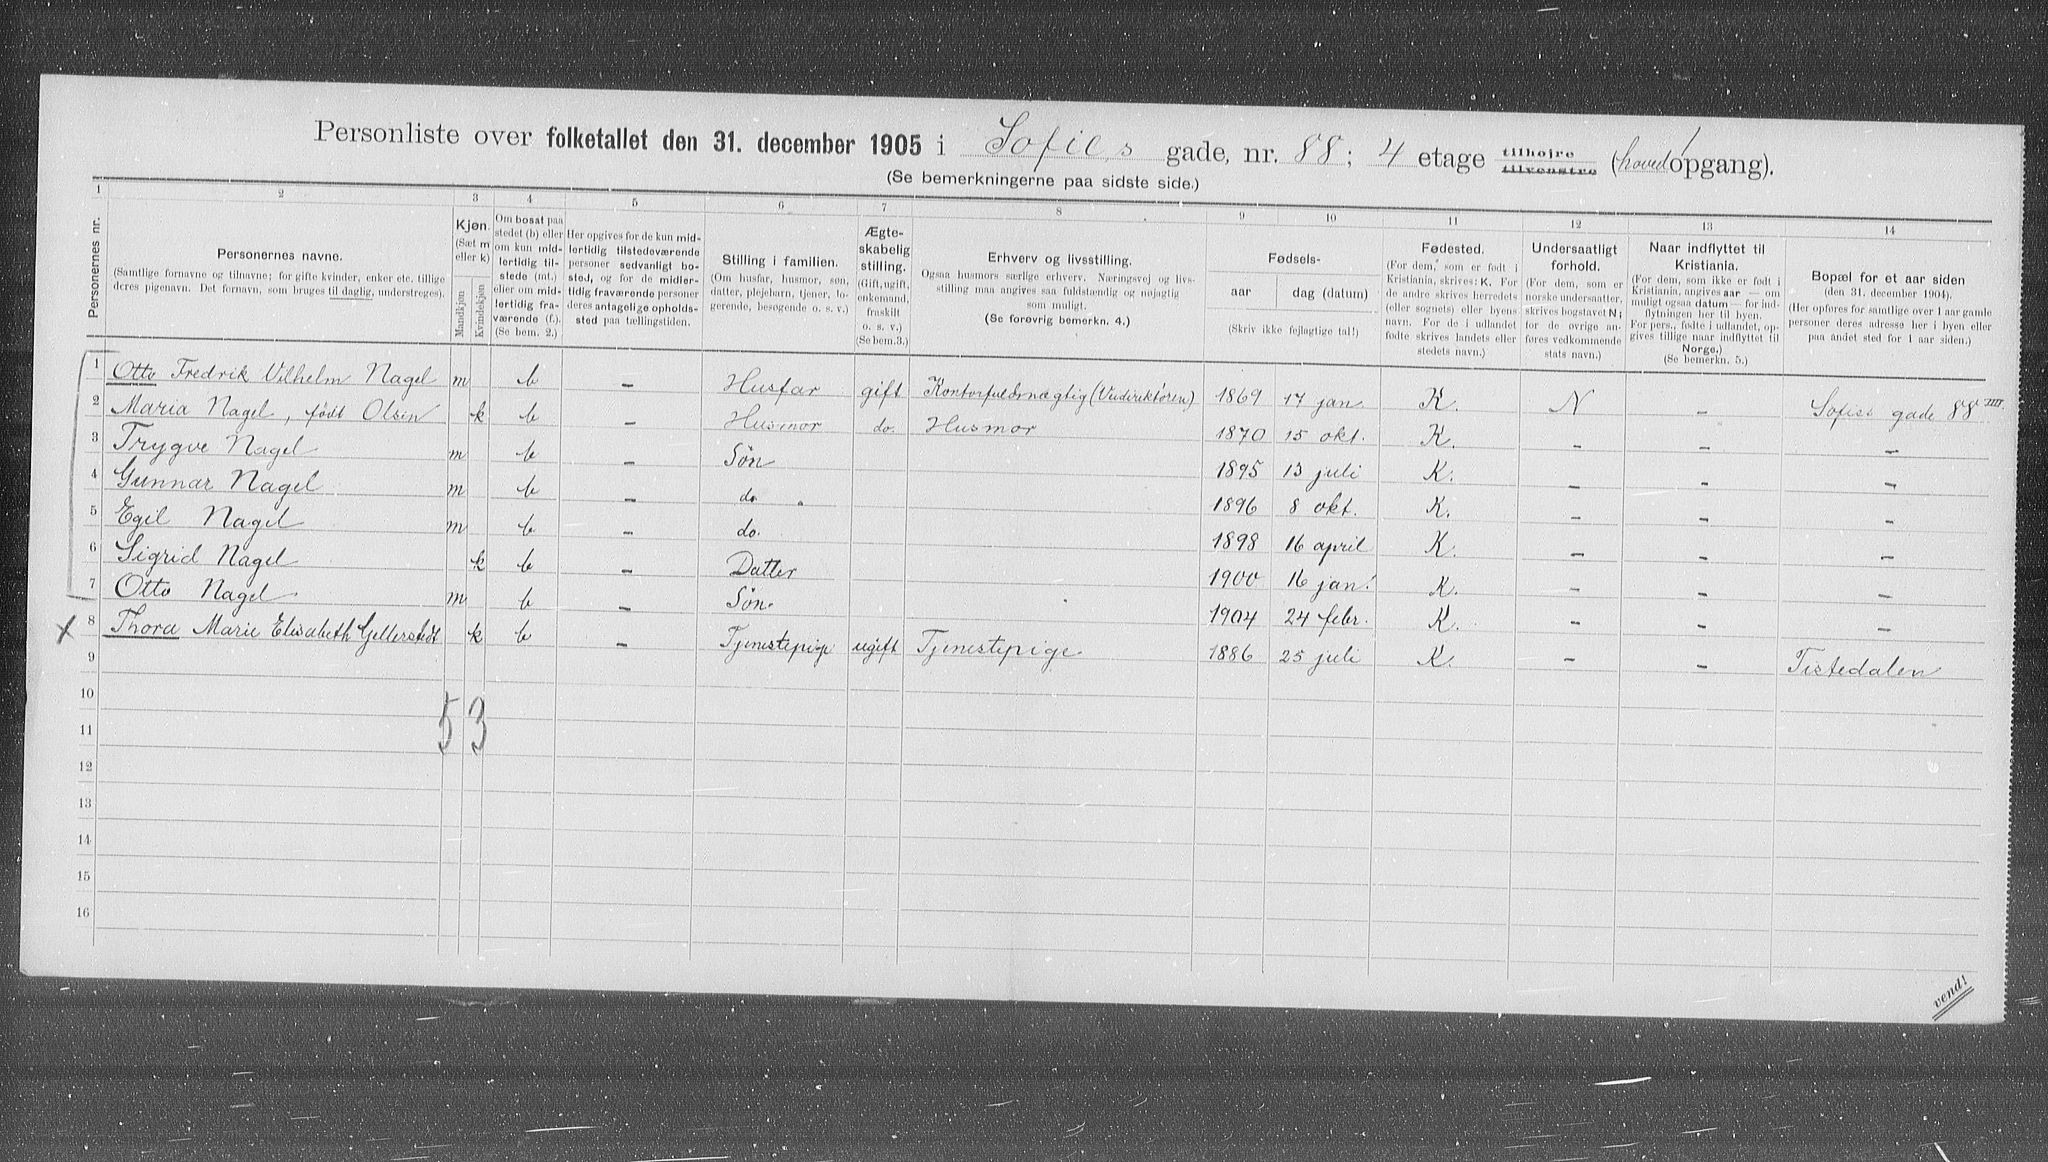 Personliste over folketallet den 31. december 1905 i Sofies gade, nr. 88; 4 etage tilhøjre tilvenstre (hovedopgang).
(Se bemerkningerne paa sidste side.)
1 2 3 4 5 6 7 8 9 10 11 12 13 14
Personernes nr.
Personernes navne.
(Samtlige fornavne og tilnavne; for gifte kvinder, enker etc. tillige
deres pigenavn. Det fornavn, som bruges til daglig, understreges).
Kjøn.
(Sæt m
eller k)
Mandkjøn
Kvindekjøn
Om bosat paa
stedet (b) eller
om kun mid-
lertidig til-
stede (mt.)
eller om mid-
lertidig fra-
værende (f.).
(Se bem. 2.)
Her opgives for de kun mid-
lertidig tilstedeværende
personer sedvanligt bo-
sted, og for de midler-
tidig fraværende personer
deres antagelige opholds-
sted paa tællingstiden.
Stilling i familien.
(Om husfar, husmor, søn,
datter, plejebarn, tjener, lo-
gerende, besøgende o. s. v.)
Ægte-
skabelig
stilling.
(Gift, ugift,
enkemand,
fraskilt
o. s. v.)
(Se bem.3.)
Erhverv og livsstilling.
Ogsaa husmors særlige erhverv. Næringsvej og livs-
stilling maa angives saa fuldstændig og nøjagtig
som muligt.
(Se forøvrig bemerkn. 4.)
Fødsels-
aar
dag (datum)
(Skriv ikke fejlagtige tal!)
Fødested.
(For dem, som er født i
Kristiania, skrives: K. For
de andre skrives herredets
(eller sognets) eller byens
navn. For de i udlandet
fødte skrives landets eller
stedets navn.)
Undersaatligt
forhold.
(For dem, som er
norske undersaatter,
skrives bogstavet N;
for de øvrige an-
føres vedkommende
stats navn.)
Naar indflyttet til
Kristiania.
(For dem, som ikke er født i
Kristiania, angives aar — om
muligt ogsaa datum — for ind-
flytningen her til byen.
For pers., fødte i udlandet, op-
gives tillige naar indflyttet til
Norge.)
(Se bemerkn. 5.)
Bopæl for et aar siden
(den 31. december 1904).
(Her opføres for samtlige over 1 aar gamle
personer deres adresse her i byen eller
paa andet sted for 1 aar siden.)
1 Otto Fredrik Vilhelm Nagel m b – Husfar gift 1869 17 jan. K. N – Sofies gade 88 IIII.
2 Maria Nagel, født Olsen k b – Husmor do. Husmor 1870 15 okt. K. – – –
3 Trygve Nagel m b – Søn 1895 13 juli K. – – –
4 Gunnar Nagel m b – do. 1896 8 okt. K. – – –
5 Egil Nagel m b – do. 1898 16 april K. – – –
6 Sigrid Nagel k b – Datter 1900 16 jan. K. – – –
7 Otto Nagel m b – Søn. 1904 24 febr. K. – – –
x 8 Thora Marie Elisabeth Gellerstedt k b – Tjenestepige ugift Tjenestepige 1886 25 juli K. – – Tistedalen
9
10
53
11
12
13
14
15
16
vend!